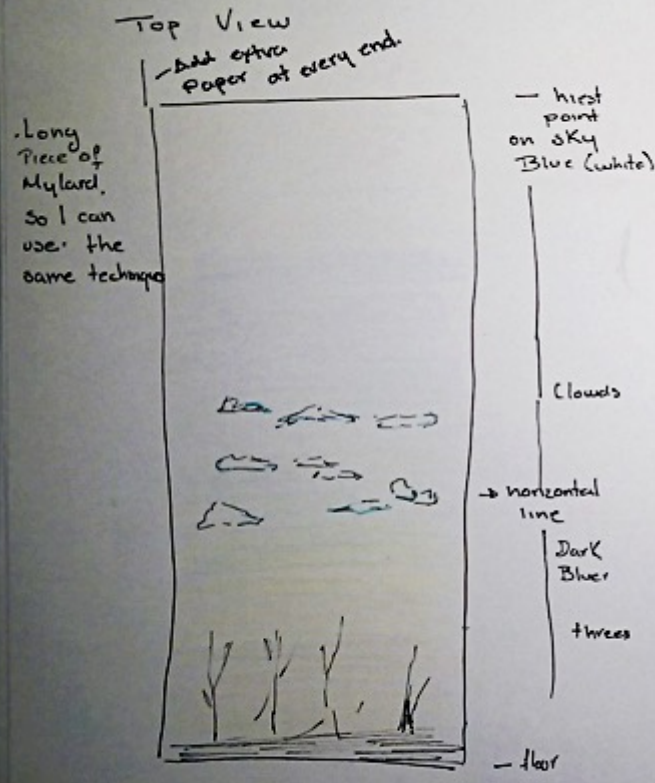 Top View
-Add extra
Paper at every end.
.Long
Piece of
Mylard.
So I can
use. the
same technique
- hiest
point
on sky
Blue (white)
Clouds
→ horizontal
line
Dark
Bluer
threes
- floor